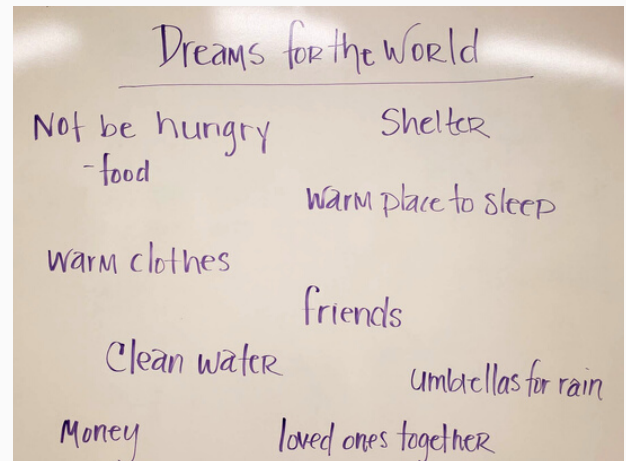 Dreams for the World
Not be hungry
- food
Shelter
Warm place to sleep
Warm clothes
friends
Clean water
umbrellas for rain
Money
loved ones together